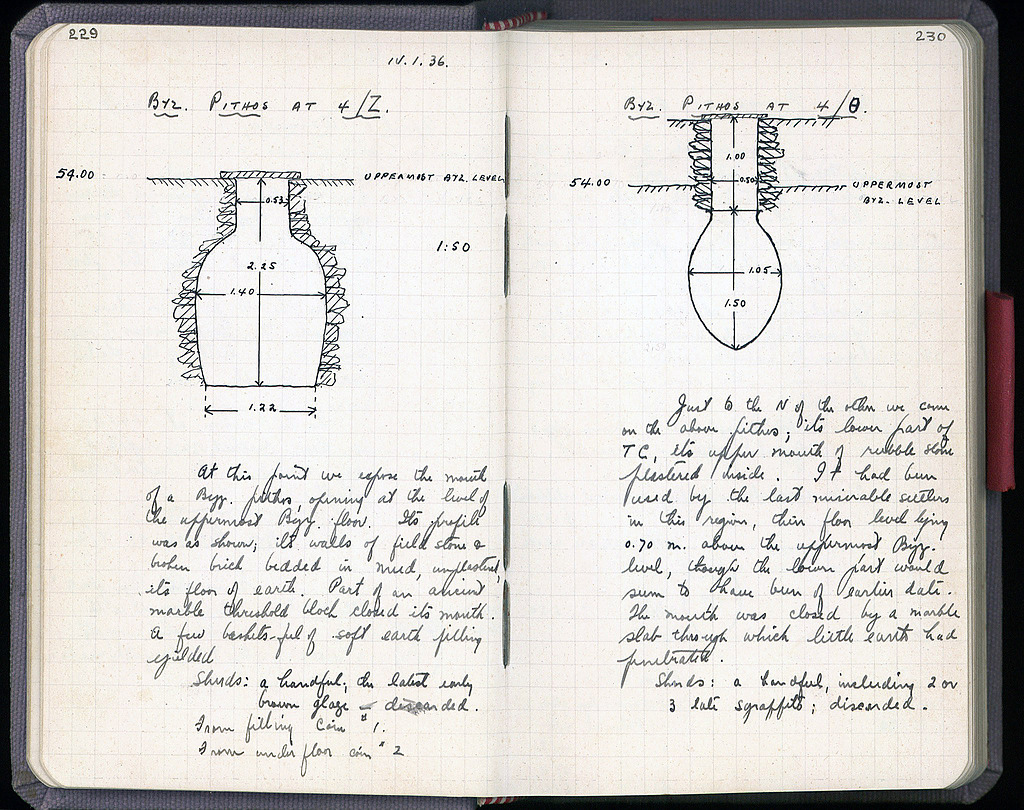 229
IV.1.36.
BYZ. PITHOS AT 4/Z.
54.00
UPPERMOST BYZ. LEVEL
0.53
1:50
2.25
1.40
1.22
At this point we expose the mouth
of a Byz. pithos, opening at the level of
the uppermost Byz. floor. Its profile
was as shown; its walls of field stone &
broken brick bedded in mud, unplastered,
its floor of earth. Part of an ancient
marble threshold block closed its mouth.
A few baskets-ful of soft earth filling
yielded
Sherds: a handful; the latest early
brown glaze – discarded.
From filling Coin # 1.
From under floor coin # 2
230
BYZ. PITHOS AT 4/Θ.
1.00
0.50
54.00
UPPERMOST
BYZ. LEVEL
1.05
1.50
Just to the N of the other we came
on the above pithos; its lower part of
TC, its upper mouth of rubble stone
plastered inside. It had been
used by the last miserable settlers
in this region, their floor level lying
0.70 m. above the uppermost Byz.
level, though the lower part would
seem to have been of earlier date.
The mouth was closed by a marble
slab through which little earth had
penetrated.
Sherds: a handful, including 2 or
3 late sgraffito; discarded.